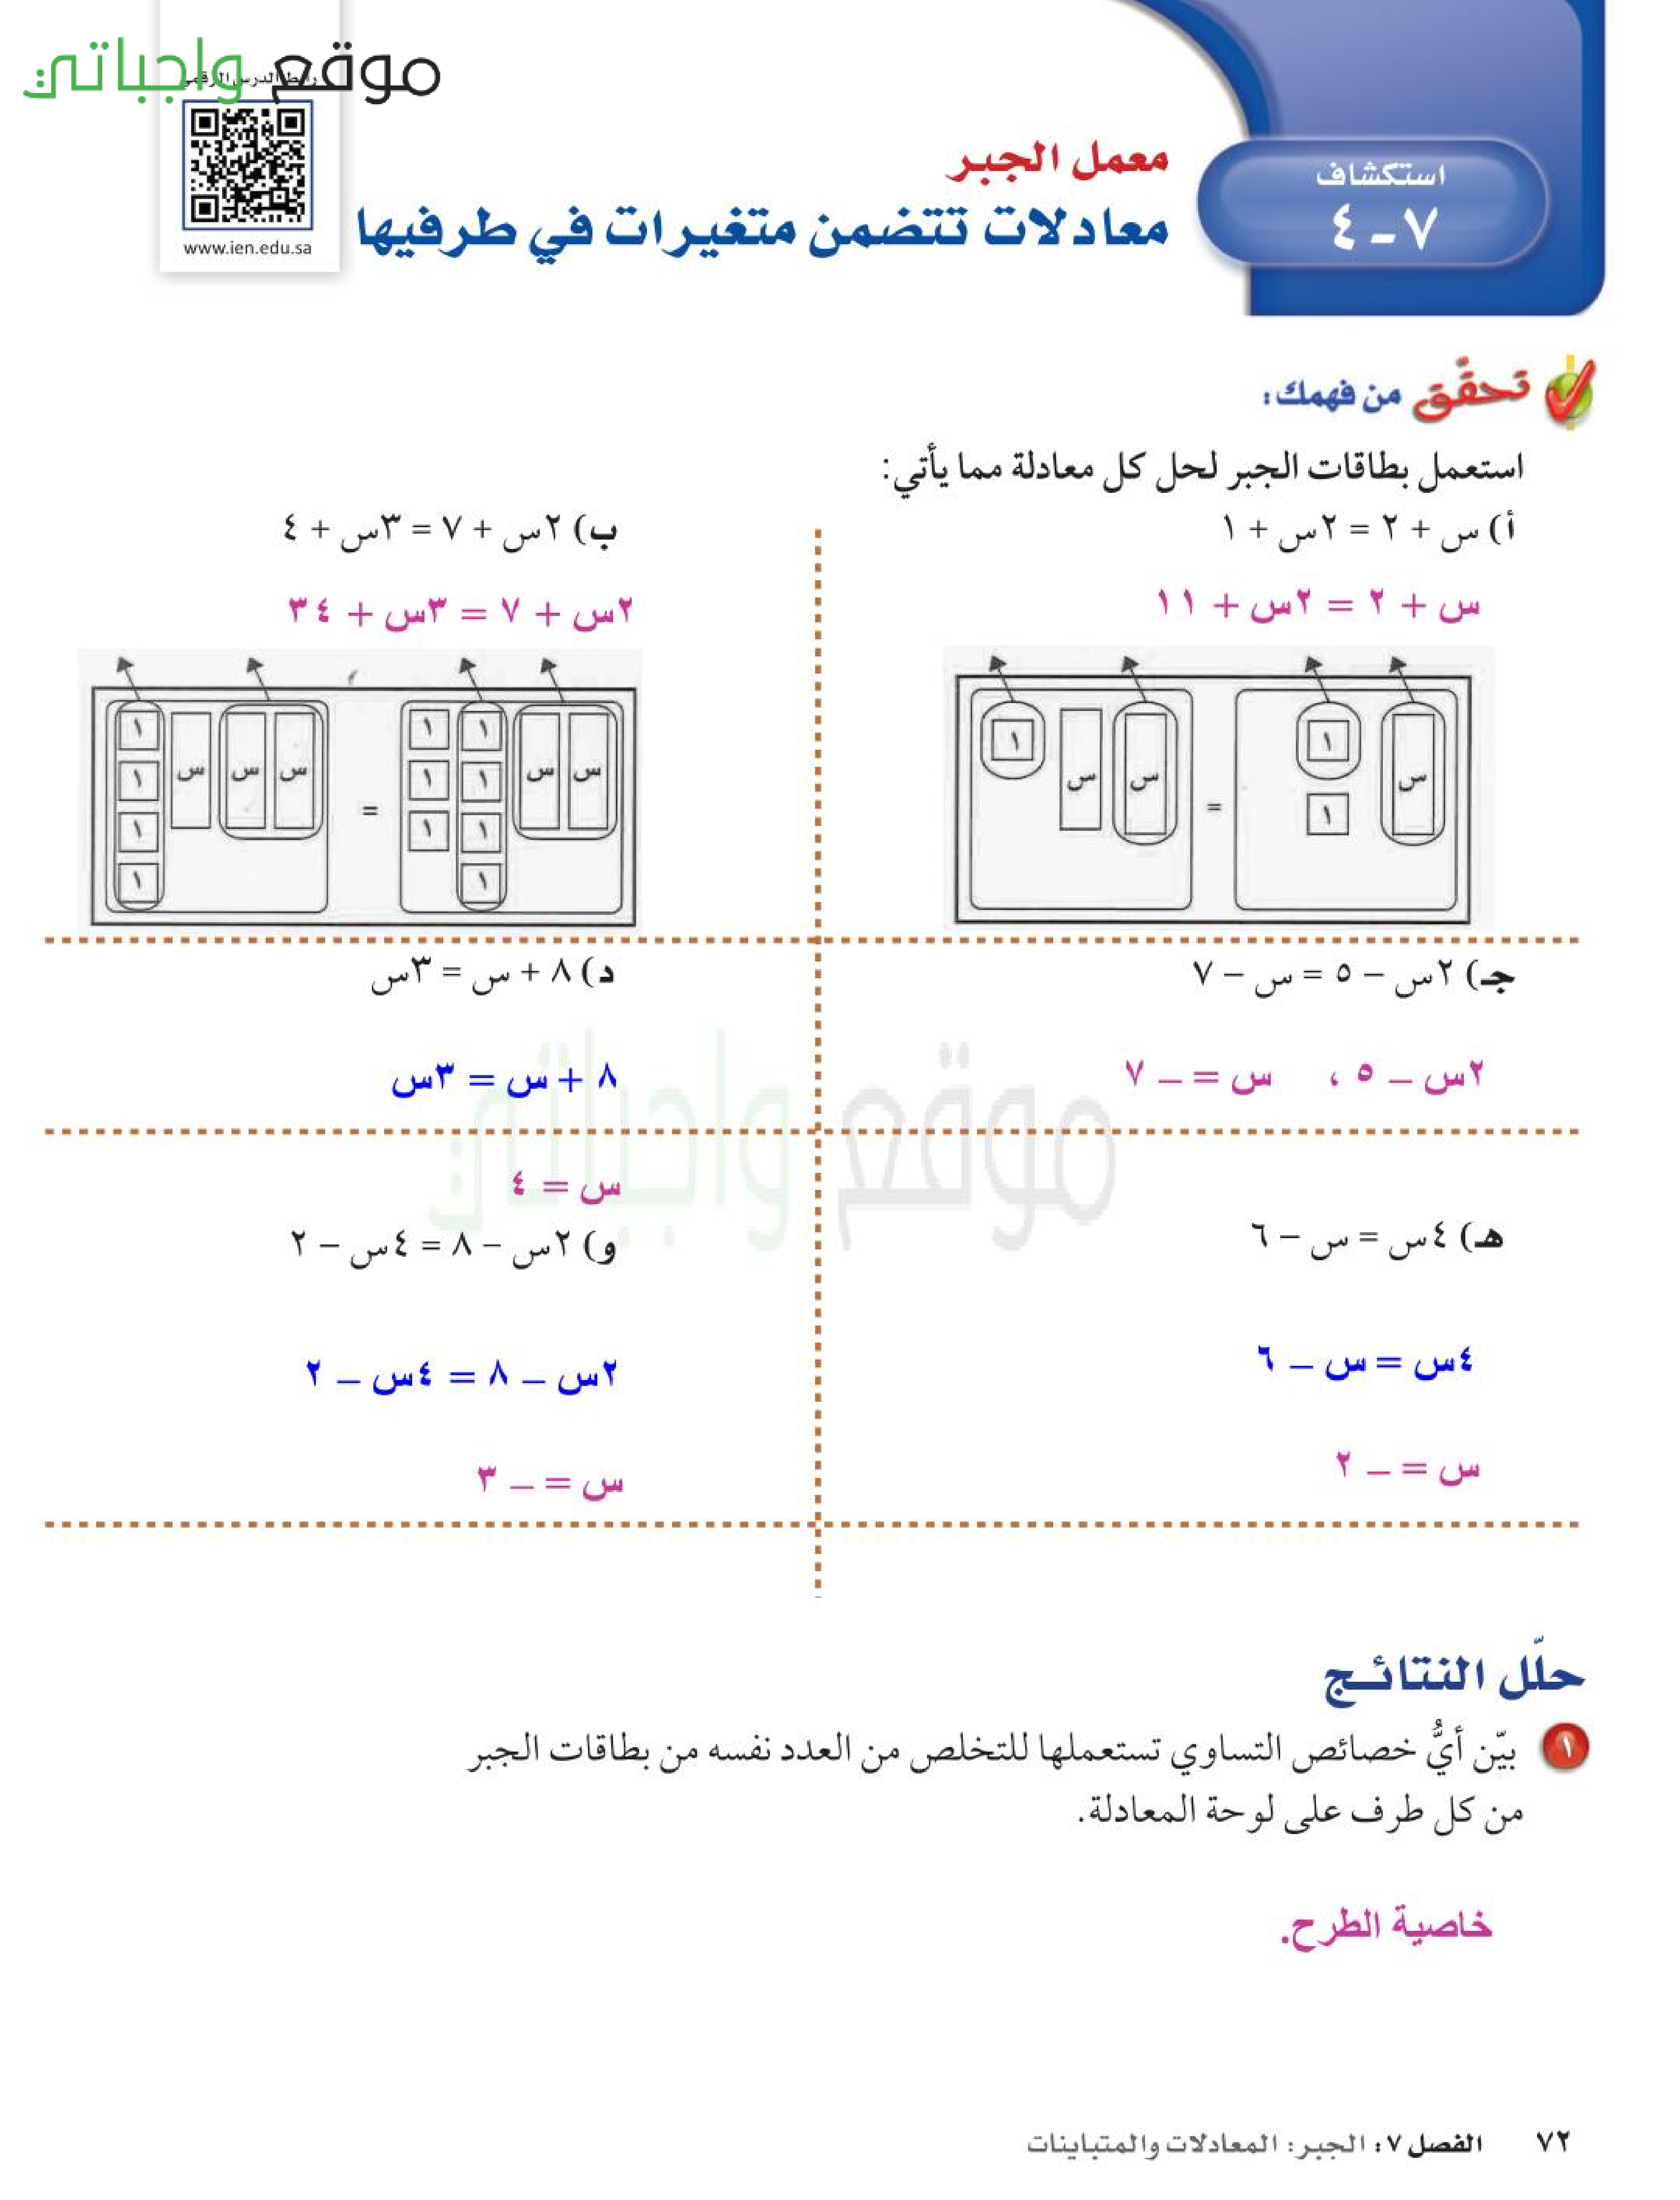 موقع واجباتي
رابط الدرس الرقمي
www.ien.edu.sa
استكشاف
٧-٤
معمل الجبر
معادلات تتضمن متغيرات في طرفيها
تحقّق من فهمك:
استعمل بطاقات الجبر لحل كل معادلة مما يأتي:
أ) س + ٢ = ٢س + ١
ب) ٢س + ٧ = ٣س + ٤
س + ٢ = ٢س + ١١
٢س + ٧ = ٣س + ٣٤
س ١ ١ = س س ١
س س ١ ١ ١ ١ ١ ١ ١ = س س س ١ ١ ١ ١
جـ) ٢س – ٥ = س – ٧
د) ٨ + س = ٣س
٢س – ٥ ، س = – ٧
٨ + س = ٣س
موقع واجباتي
س = ٤
هـ) ٤س = س – ٦
و) ٢س – ٨ = ٤س – ٢
٤س = س – ٦
٢س – ٨ = ٤س – ٢
س = – ٢
س = – ٣
حلّل النتائج
١ بيّن أيُّ خصائص التساوي تستعملها للتخلص من العدد نفسه من بطاقات الجبر
من كل طرف على لوحة المعادلة.
خاصية الطرح.
٧٢ الفصل ٧: الجبر: المعادلات والمتباينات